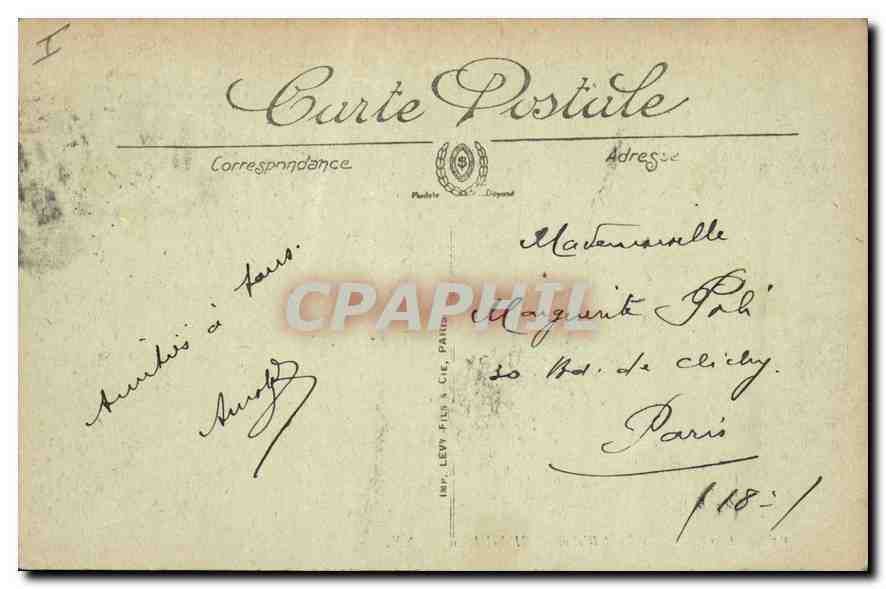 I
Carte Postale
Correspondance
Adresse
$
Modèle Déposé
Amitiés à tous.
Mademoiselle
Marguerite Poli
30 Bd. de Clichy.
Paris
(18e)
IMP. LÉVY FILS & CIE, PARIS
CPAPHIL